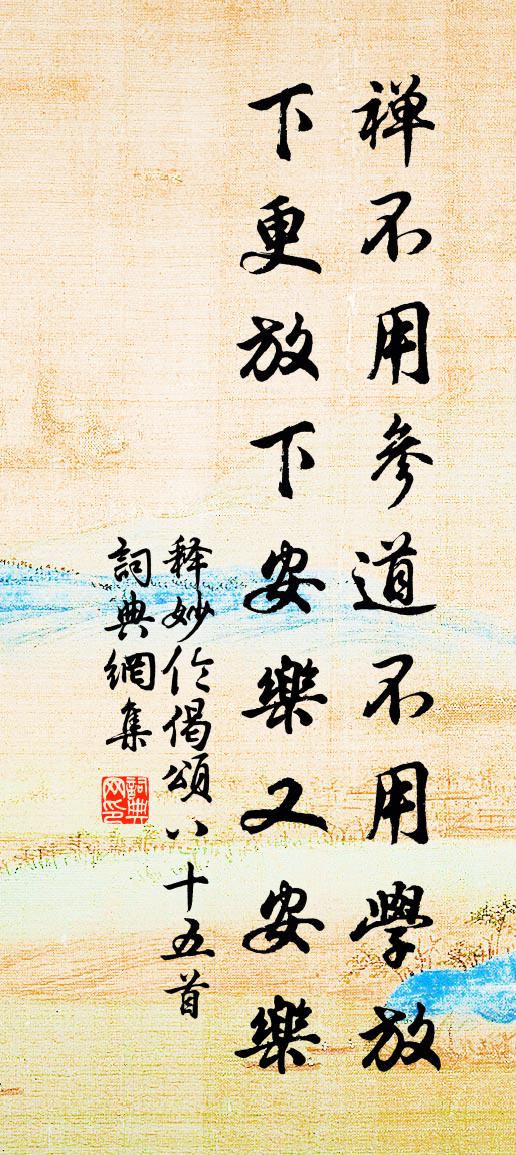 禅不用參道不用學放
下更放下安樂又安樂
释妙伦偈頌八十五首
詞典網集
詞典
网印